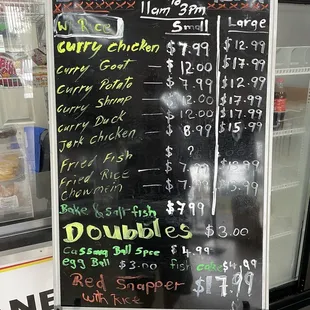 11am to 3pm
Small Large
w Rice
Curry Chicken $7.99 $12.99
Curry Goat $12.00 $17.99
Curry Potato $7.99 $12.99
Curry Shrimp $12.00 $17.99
Curry Duck $12.00 $17.99
Jerk Chicken $8.99 $15.99
Fried Fish $ ?
Fried Rice $7.99
Chowmein $7.
Bake & Salt-fish $7.99
Doubbles $3.00
Cassava Ball 5pce $4.99
egg Ball $3.00 fish cake $4.99
Red Snapper $17.99
with Rice